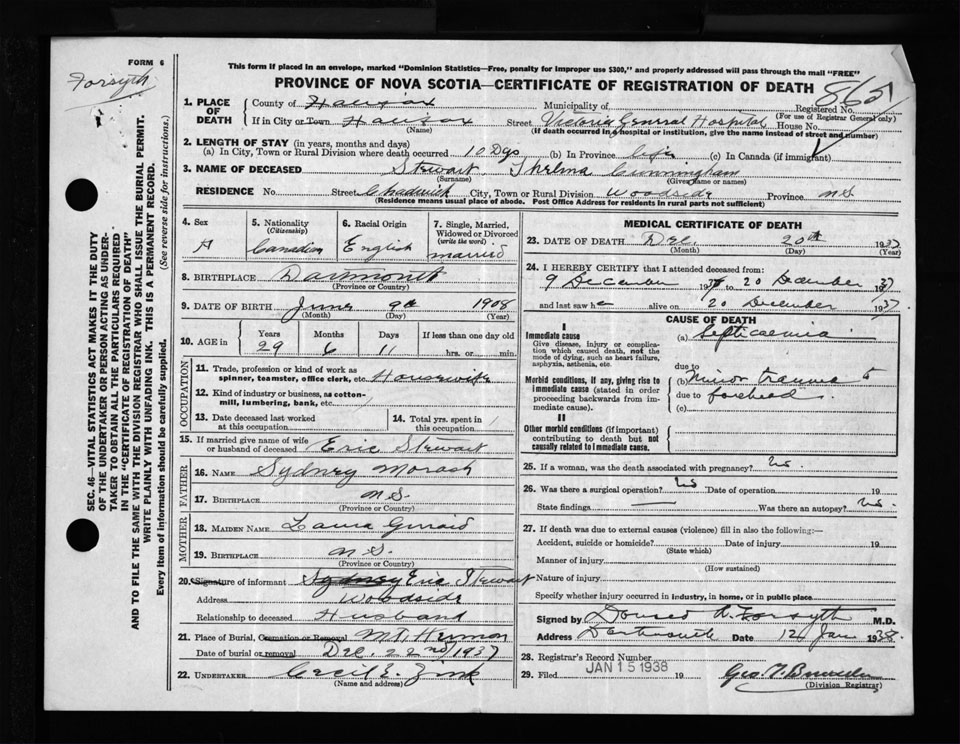 FORM 6
Forsyth
This form if placed in an envelope, marked "Dominion Statistics—Free, penalty for improper use $300," and properly addressed will pass through the mail "FREE"
PROVINCE OF NOVA SCOTIA—CERTIFICATE OF REGISTRATION OF DEATH
865
Registered No.
(For use of Registrar General only)
1. PLACE OF DEATH
County of Halifax Municipality of
If in City or Town Halifax Street Victoria General Hospital House No.
(Name) (If death occurred in a hospital or institution, give the name instead of street and number)
2. LENGTH OF STAY (in years, months and days)
(a) In City, Town or Rural Division where death occurred 10 Dys (b) In Province life (c) In Canada (if immigrant)
3. NAME OF DECEASED Stewart Thelma Cunningham
(Surname) (Given name or names)
RESIDENCE No. Street Chadwick City, Town or Rural Division Woodside Province N.S.
(Residence means usual place of abode. Post Office Address for residents in rural parts not sufficient)
4. Sex
5. Nationality (Citizenship) Canadian
6. Racial Origin English
7. Single, Married, Widowed or Divorced (write the word) married
8. BIRTHPLACE Dartmouth
(Province or Country)
9. DATE OF BIRTH June 9th 1908
(Month) (Day) (Year)
10. AGE in Years 29 Months 6 Days 11 If less than one day old hrs. or min.
OCCUPATION
11. Trade, profession or kind of work as spinner, teamster, office clerk, etc. Housewife
12. Kind of industry or business, as cotton-mill, lumbering, bank, etc.
13. Date deceased last worked at this occupation
14. Total yrs. spent in this occupation
15. If married give name of wife or husband of deceased Eric Stewart
FATHER
16. NAME Sydney Morash
17. BIRTHPLACE N.S.
(Province or Country)
MOTHER
18. MAIDEN NAME Laura
19. BIRTHPLACE N.S.
(Province or Country)
20. Signature of informant Sydney Eric Stewart
Address Woodside
Relationship to deceased Husband
21. Place of Burial, Cremation or Removal Mt. Hermon
Date of burial or removal Dec. 22nd 1937
22. UNDERTAKER Cecil E. Zink
(Name and address)
MEDICAL CERTIFICATE OF DEATH
23. DATE OF DEATH Dec. 20th 1937
(Month) (Day) (Year)
24. I HEREBY CERTIFY that I attended deceased from:
9 December 1937 to 20 December 1937
and last saw h e alive on 20 December 1937
CAUSE OF DEATH
I
Immediate cause
Give disease, injury or complication which caused death, not the mode of dying, such as heart failure, asphyxia, asthenia, etc.
(a) Septicaemia
due to
Morbid conditions, if any, giving rise to immediate cause (stated in order proceeding backwards from immediate cause).
(b) Minor trauma to
due to forehead
(c)
II
Other morbid conditions (if important) contributing to death but not causally related to immediate cause.
25. If a woman, was the death associated with pregnancy? No.
26. Was there a surgical operation? No Date of operation 19
State findings Was there an autopsy? No.
27. If death was due to external causes (violence) fill in also the following:—
Accident, suicide or homicide? Date of injury 19
(State which)
Manner of injury
(How sustained)
Nature of injury
Specify whether injury occurred in industry, in home, or in public place
Signed by Forsyth M.D.
Address Dartmouth Date 12 Jan 1938.
28. Registrar's Record Number
29. Filed JAN 15 1938 19
(Division Registrar)
SEC. 46—VITAL STATISTICS ACT MAKES IT THE DUTY
OF THE UNDERTAKER OR PERSON ACTING AS UNDER-
TAKER TO OBTAIN ALL THE PARTICULARS REQUIRED
IN THE "CERTIFICATE OF REGISTRATION OF DEATH"
AND TO FILE THE SAME WITH THE DIVISION REGISTRAR WHO SHALL ISSUE THE BURIAL PERMIT.
WRITE PLAINLY WITH UNFADING INK. THIS IS A PERMANENT RECORD.
Every item of information should be carefully supplied. (See reverse side for instructions.)